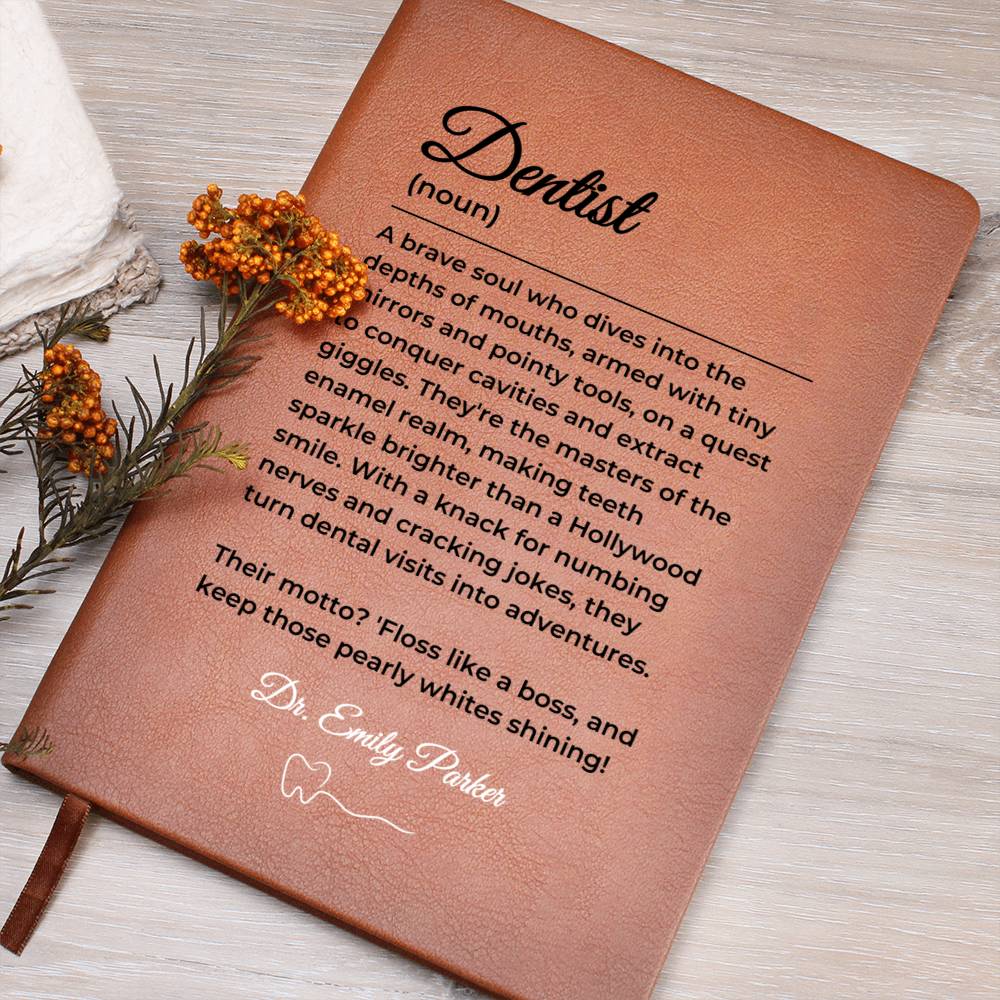 Dentist
(noun)
A brave soul who dives into the
depths of mouths, armed with tiny
mirrors and pointy tools, on a quest
to conquer cavities and extract
giggles. They're the masters of the
enamel realm, making teeth
sparkle brighter than a Hollywood
smile. With a knack for numbing
nerves and cracking jokes, they
turn dental visits into adventures.
Their motto? 'Floss like a boss, and
keep those pearly whites shining!
Dr. Emily Parker